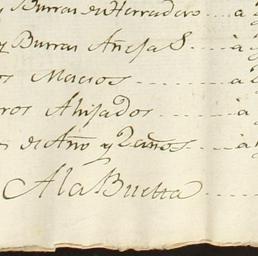 y Burras de Herradero ..... a
y Burras Añejas ..... a
os Machos ..... a
ros Ahijados ..... a
s de Año y 2 años ..... a
A la Buelta .....